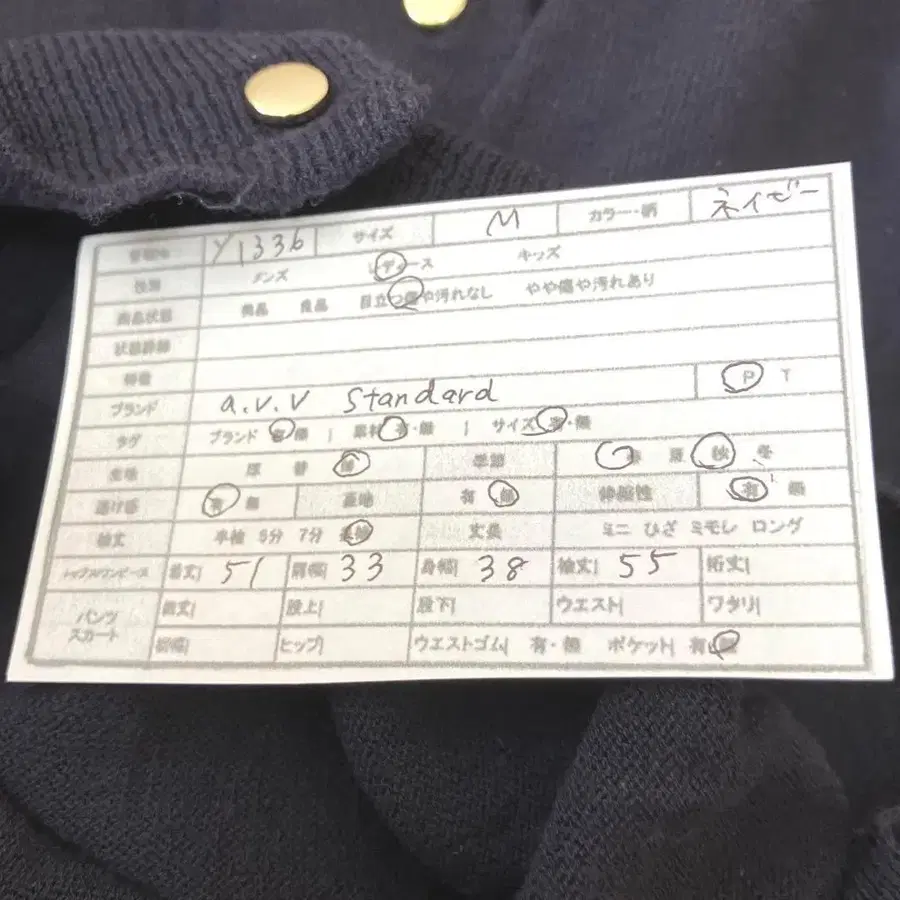 Y1336 サイズ M カラー・柄 ネイビー
性別 メンズ レディース キッズ
商品状態 美品 良品 目立つ傷や汚れなし やや傷や汚れあり
状態詳細
特徴
ブランド a.v.v Standard P T
タグ ブランド 有・無 | 素材 有・無 | サイズ 有・無
生地 厚 普 薄 季節 春 夏 秋 冬
透け感 有 無 裏地 有 無 伸縮性 有 無
袖丈 半袖 5分 7分 長袖 丈長 ミニ ひざ ミモレ ロング
トップス/ワンピース 着丈| 51 肩幅| 33 身幅| 38 袖丈| 55 裄丈|
パンツ スカート 股上| 股下 ウエスト| ワタリ|
裾幅| ヒップ| ウエストゴム| 有・無 ポケット| 有